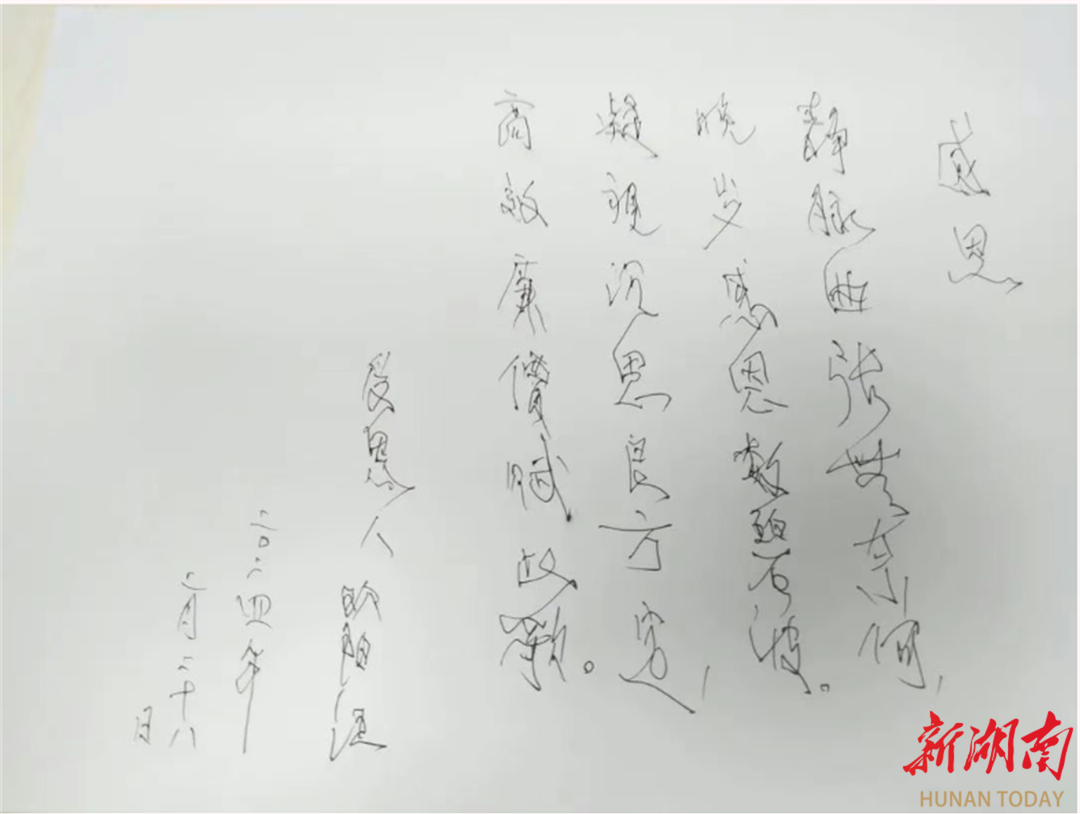 感恩
静脉曲张无奈何，
晚岁感恩数碧波。
凝视沉思良方选，
高效廉價赋政歌。
受恩人 欧阳
二〇二四年
二月二十八
日
新湖南
HUNAN TODAY